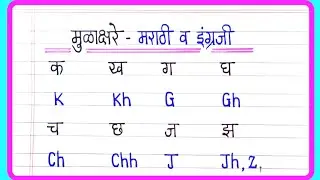 मुळाक्षरे - मराठी व इंग्रजी
क ख ग घ
K Kh G Gh
च छ ज झ
Ch Chh J Jh, Z,